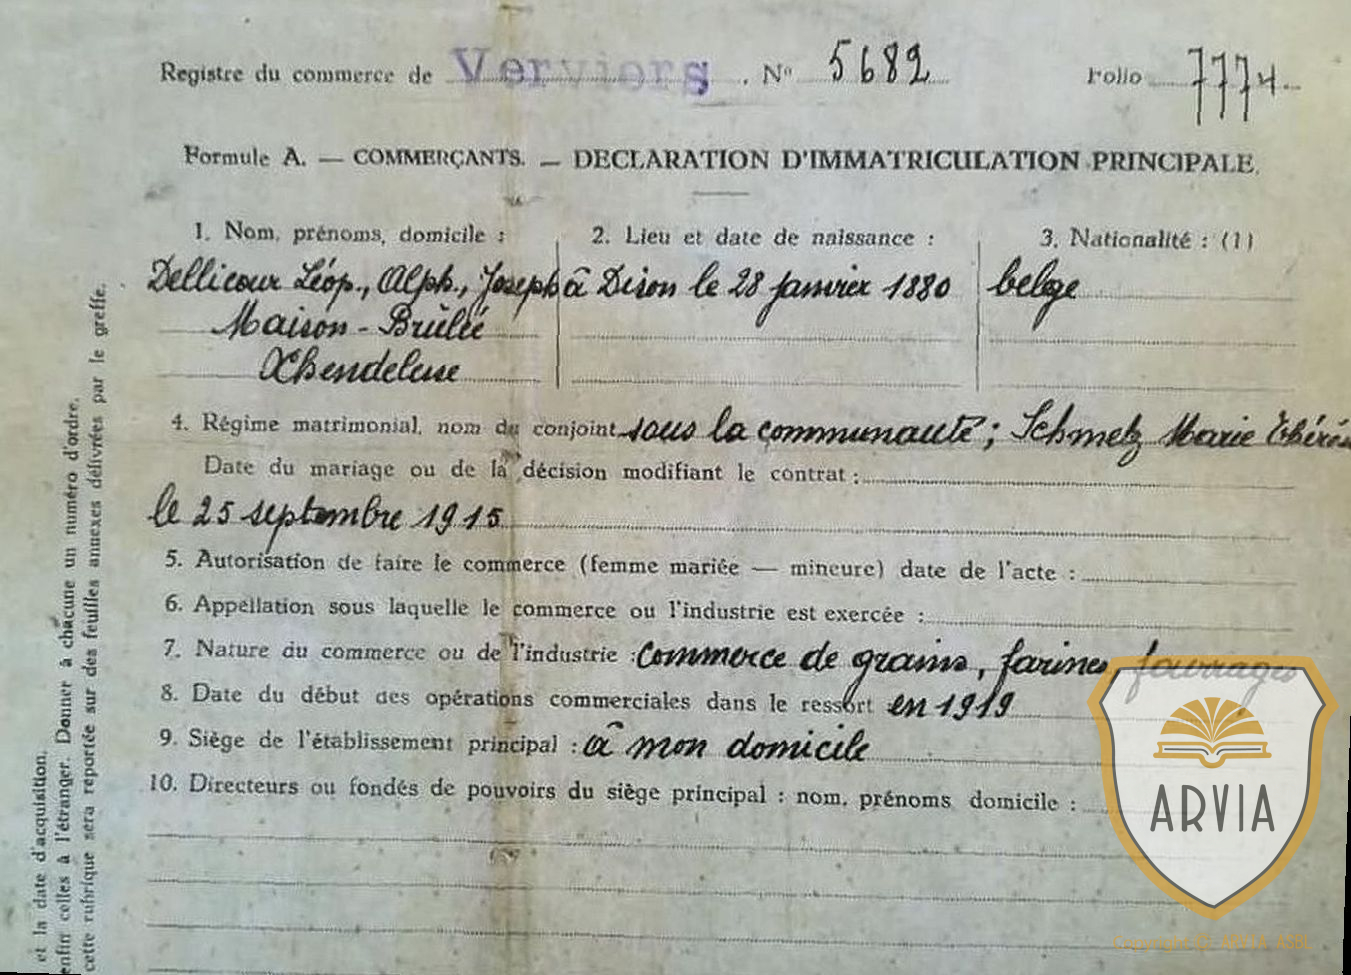 Registre du commerce de Verviers. N° 5682 Folio 7774
Formule A. — COMMERÇANTS. — DECLARATION D'IMMATRICULATION PRINCIPALE.
1. Nom, prénoms, domicile : 2. Lieu et date de naissance : 3. Nationalité : (1)
Dellicour Léop., Alph., Joseph à Dison le 28 janvier 1880 belge
Maison - Brûlée
Xhendelesse
4. Régime matrimonial, nom du conjoint sous la communauté ; Schmetz Marie
Date du mariage ou de la décision modifiant le contrat :
le 25 septembre 1915
5. Autorisation de faire le commerce (femme mariée — mineure) date de l'acte :
6. Appellation sous laquelle le commerce ou l'industrie est exercée :
7. Nature du commerce ou de l'industrie : Commerce de grains, farines, fourrages
8. Date du début des opérations commerciales dans le ressort en 1919
9. Siège de l'établissement principal : à mon domicile
10. Directeurs ou fondés de pouvoirs du siège principal : nom, prénoms domicile :
et la date d'acquisition.
enfin celles à l'étranger. Donner à chacune un numéro d'ordre.
cette rubrique sera reportée sur des feuilles annexes délivrées par le greffe.
ARVIA
Copyright © ARVIA ASBL